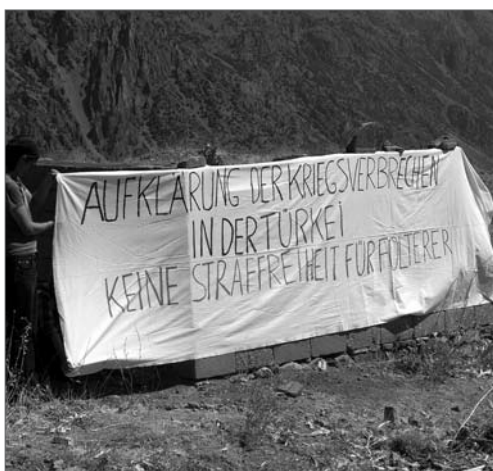 AUFKLÄRUNG DER KRIEGSVERBRECHEN
IN DER TÜRKEI
KEINE STRAFFREIHEIT FÜR FOLTERER